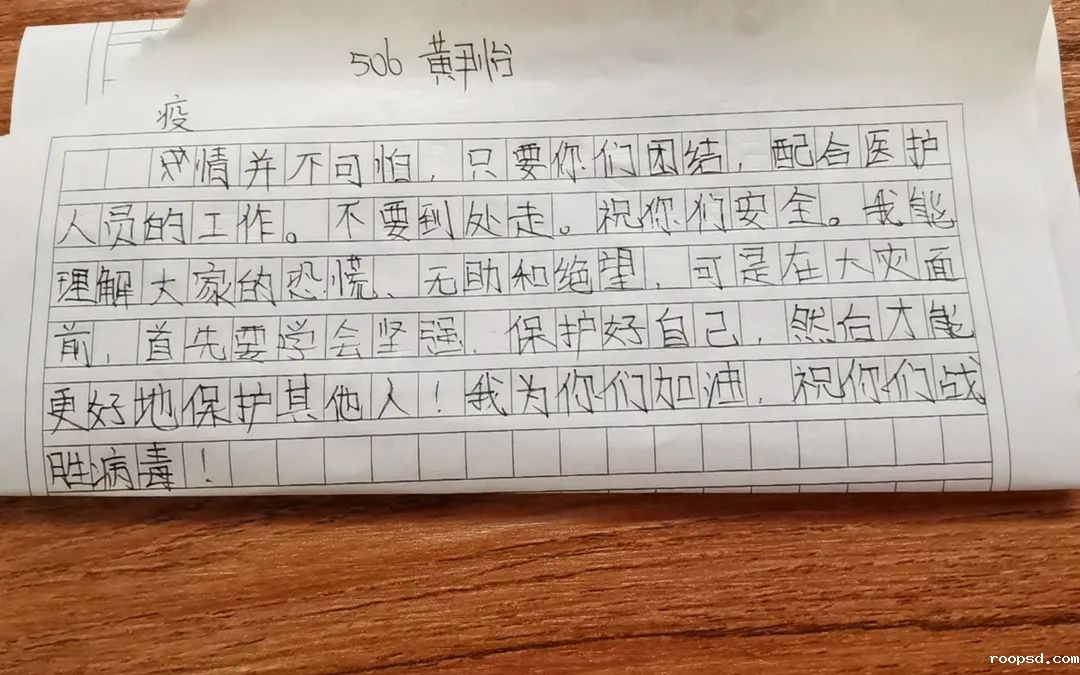 506 黄尹怡
疫
情并不可怕，只要你们团结，配合医护
人员的工作。不要到处走。祝你们安全。我能
理解大家的恐慌、无助和绝望，可是在大灾面
前，首先要学会坚强，保护好自己，然后才能
更好地保护其他人！我为你们加油，祝你们战
胜病毒！
roopsd.com